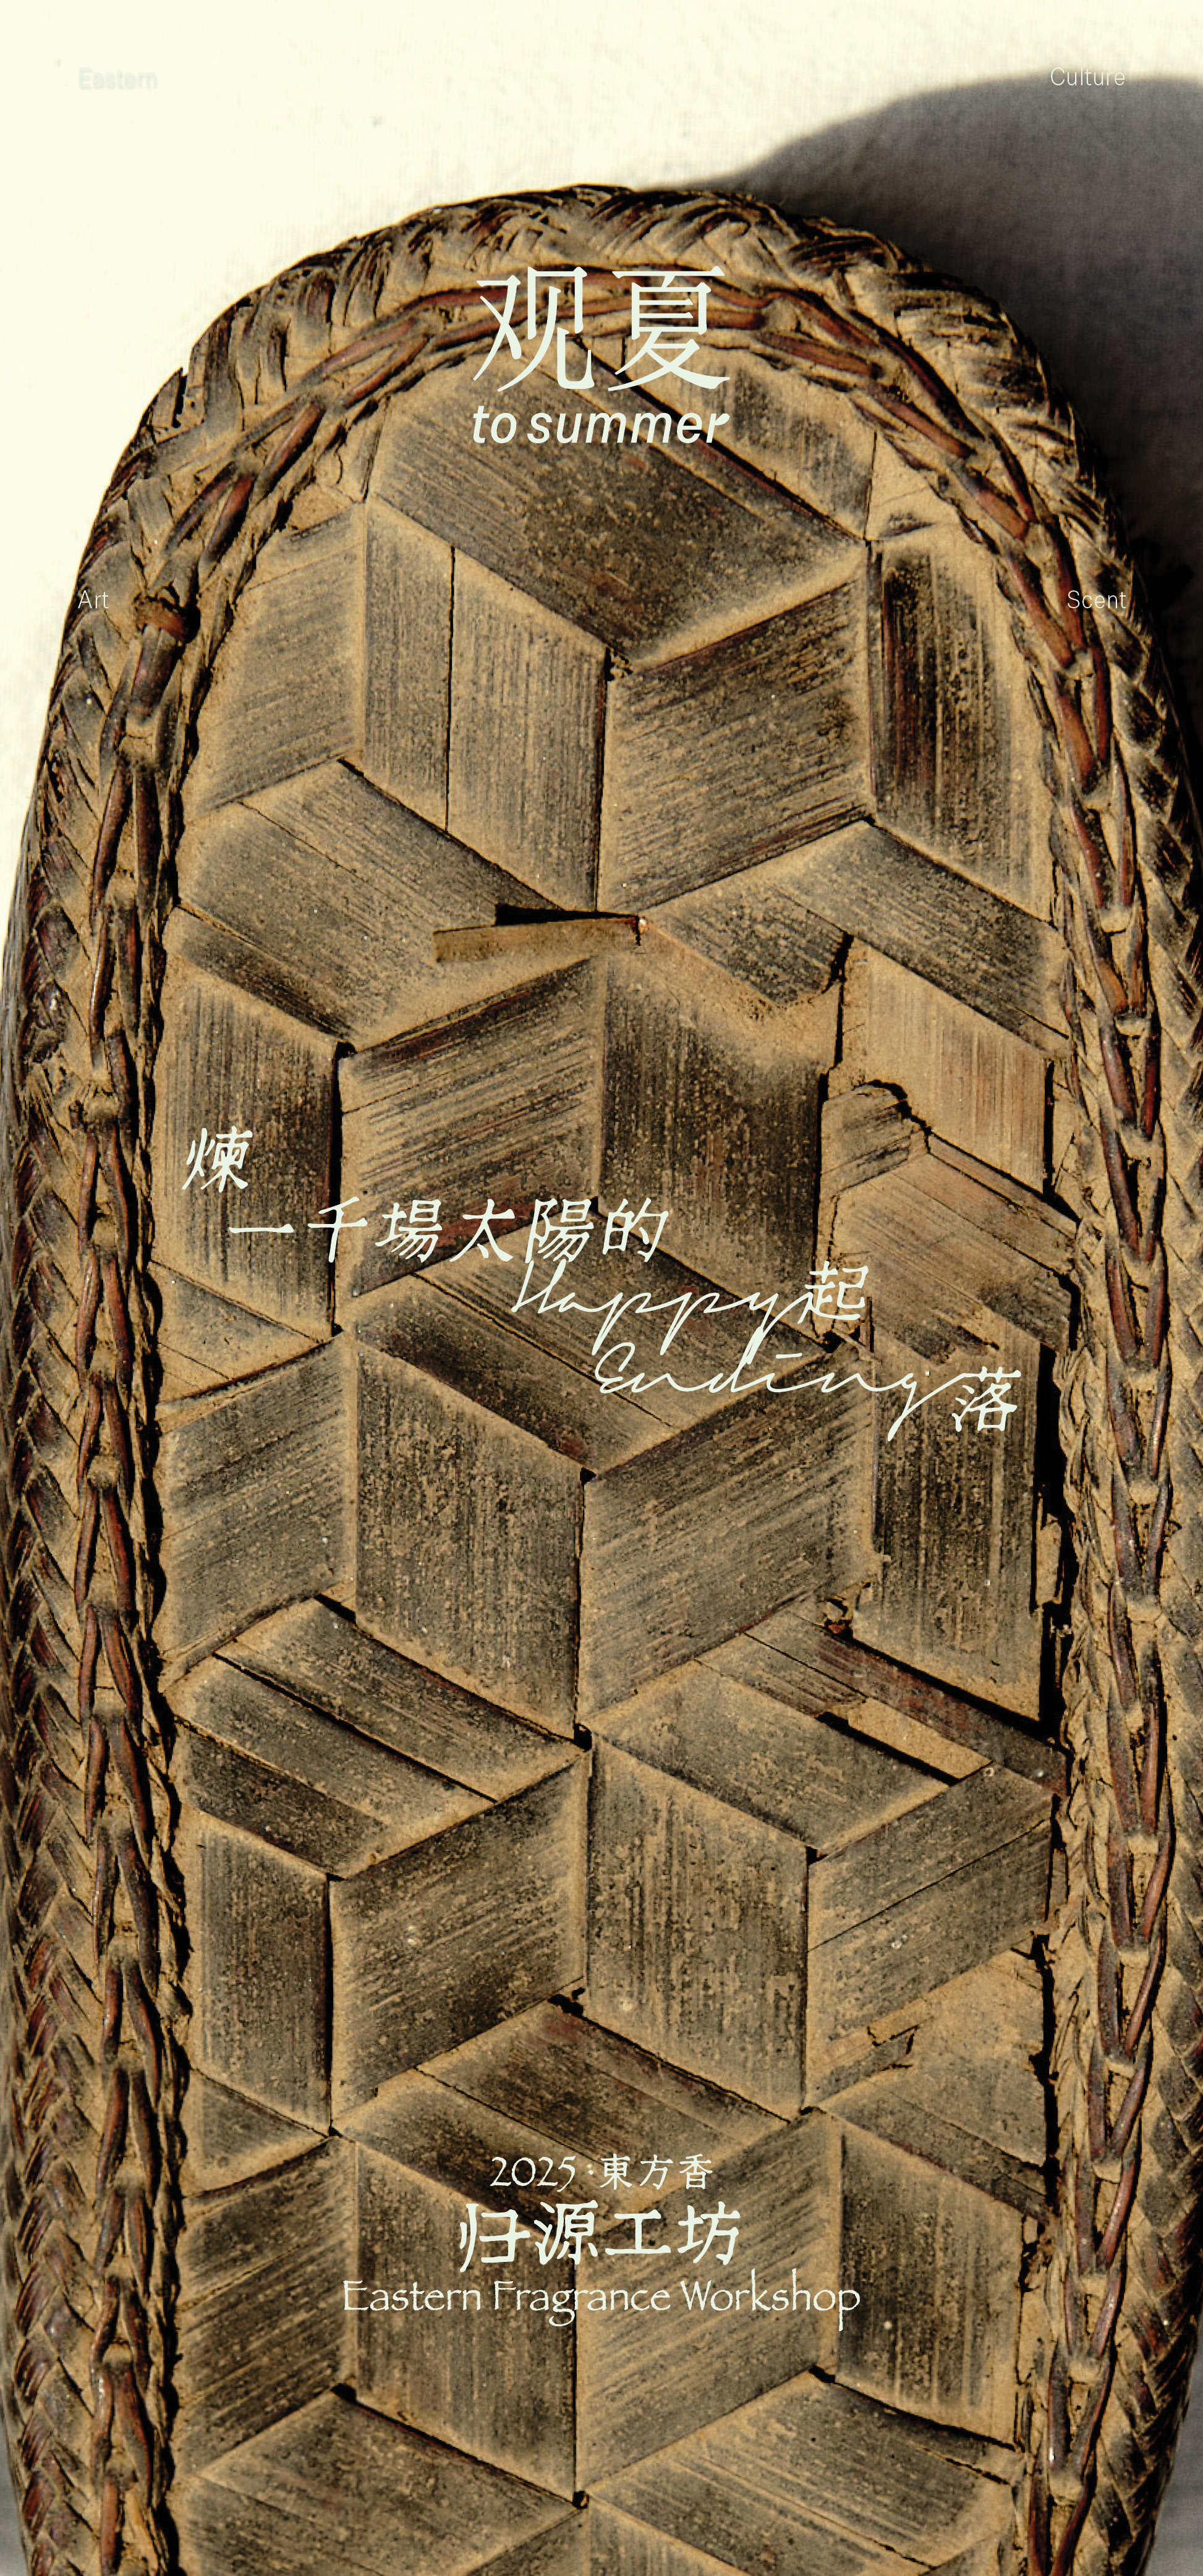 Eastern
Culture
观夏
to summer
Art
Scent
煉
一千場太陽的
Happy起
Ending落
2025:東方香
归源工坊
Eastern Fragrance Workshop